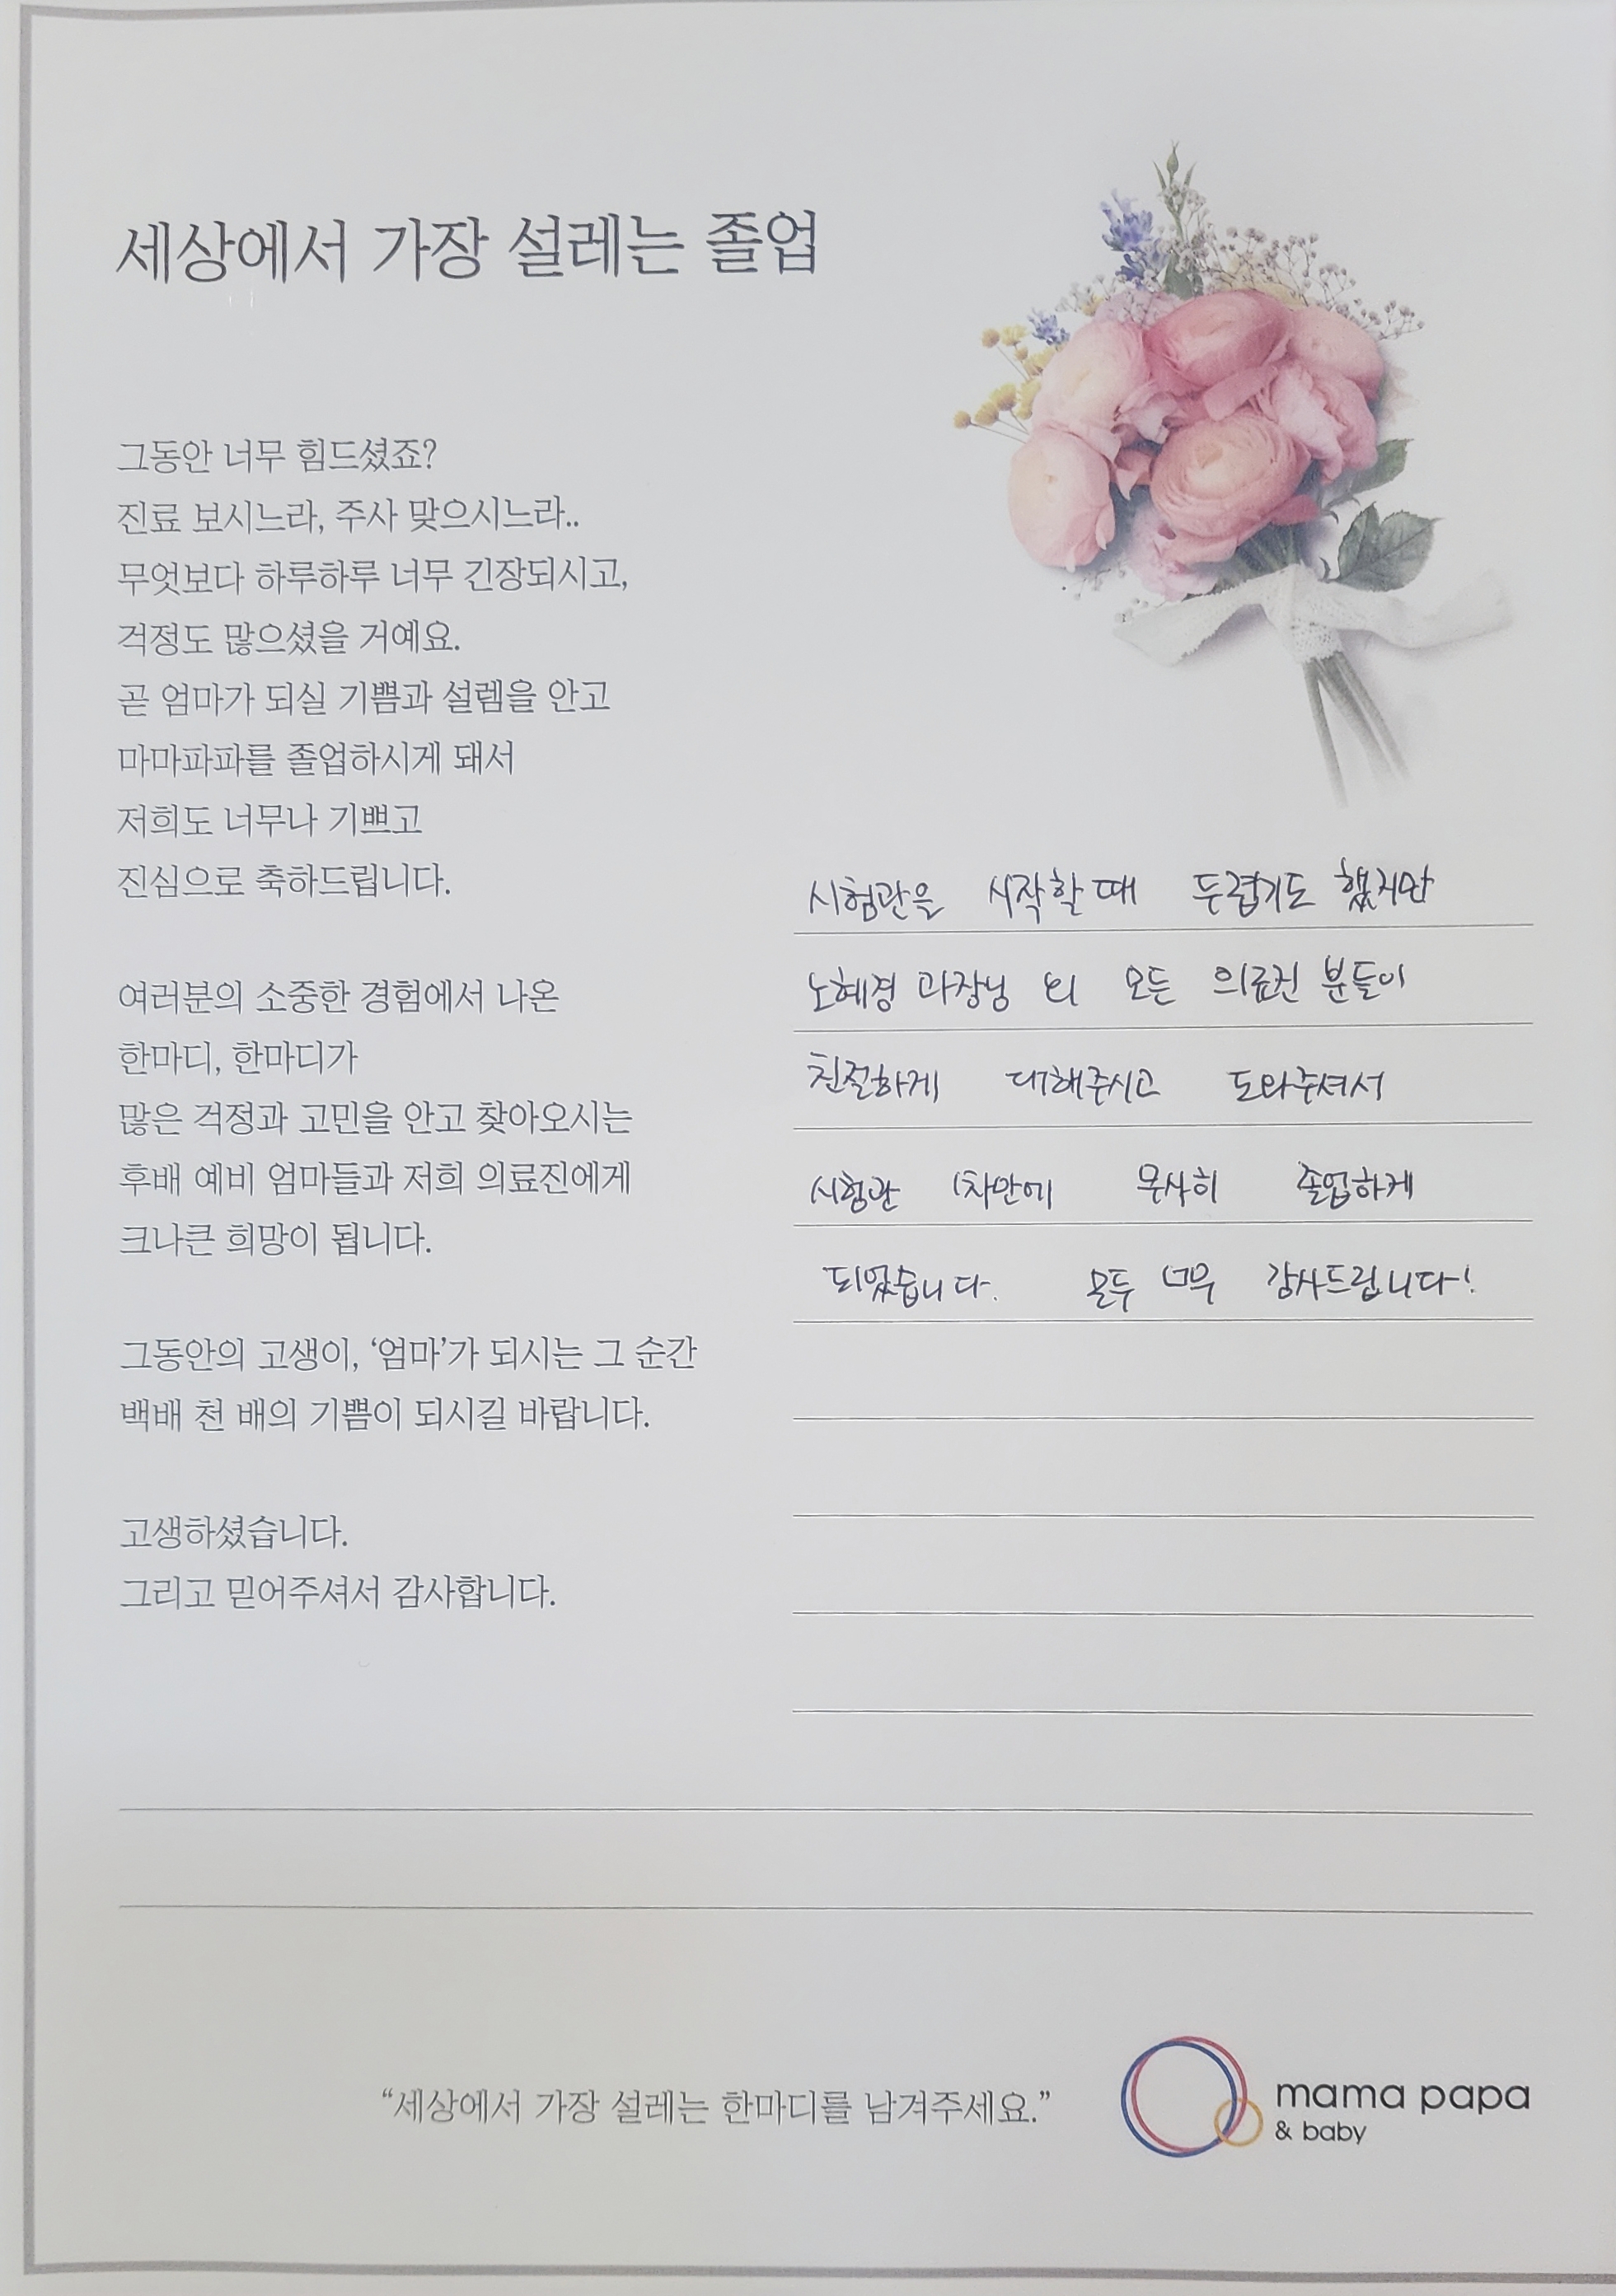 세상에서 가장 설레는 졸업
그동안 너무 힘드셨죠?
진료 보시느라, 주사 맞으시느라..
무엇보다 하루하루 너무 긴장되시고,
걱정도 많으셨을 거예요.
곧 엄마가 되실 기쁨과 설렘을 안고
마마파파를 졸업하시게 돼서
저희도 너무나 기쁘고
진심으로 축하드립니다.
여러분의 소중한 경험에서 나온
한마디, 한마디가
많은 걱정과 고민을 안고 찾아오시는
후배 예비 엄마들과 저희 의료진에게
크나큰 희망이 됩니다.
그동안의 고생이, ‘엄마’가 되시는 그 순간
백배 천 배의 기쁨이 되시길 바랍니다.
고생하셨습니다.
그리고 믿어주셔서 감사합니다.
시험관을 시작할 때 두렵기도 했지만
노혜경 과장님 외 모든 의료진 분들이
친절하게 대해주시고 도와주셔서
시험관 1차만에 무사히 졸업하게
되었습니다. 모두 너무 감사드립니다!
“세상에서 가장 설레는 한마디를 남겨주세요.”
mama papa
& baby